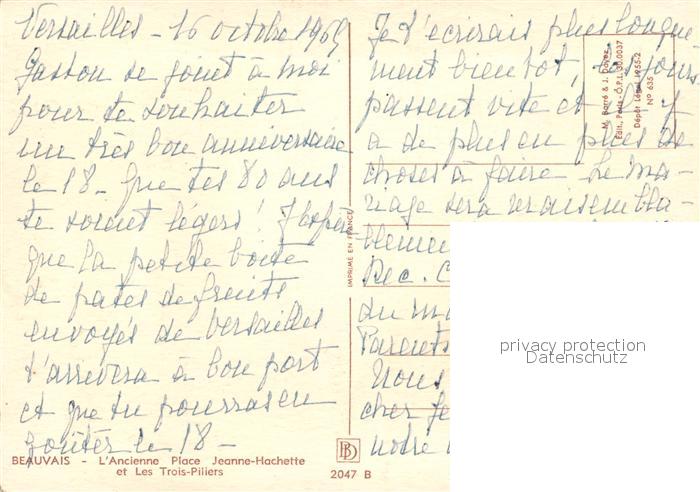 Versailles - 16 octobre 1969
Gaston se joint à moi
pour te souhaiter
un très bon anniversaire
le 18 - Que tes 80 ans
te soient légers ! J'espère
que la petite boîte
de pates de fruits
envoyés de Versailles
t'arrivera à bon port
et que tu pourras en
goûter le 18 -
BEAUVAIS - L'Ancienne Place Jeanne-Hachette
et Les Trois-Piliers
IMPRIMÉ EN FRANCE
BD
2047 B
Je t'écrirais plus longue-
ment bientôt, jours
passent vite et il y
a de plus en plus de
choses à faire Le ma-
riage sera vraisembla-
blement
Dec. C
du ma
Parents
Nous
cher Je
notre
M. Barré & J. Dayez
Édit., Paris
Dépôt Légal 1955-2
N° 635
privacy protection
Datenschutz